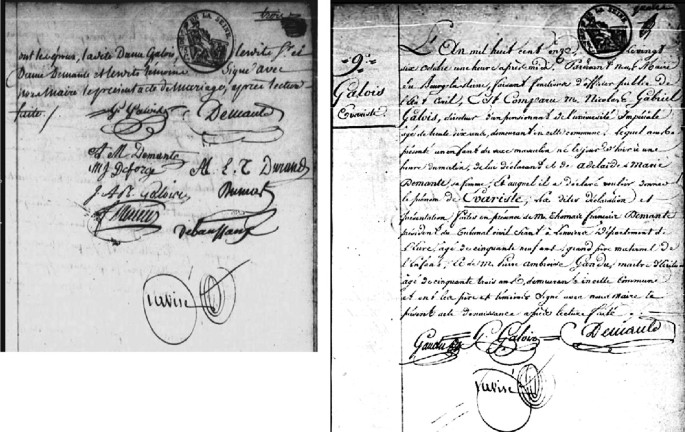 trois
ont les jour, la dite Dame Galois, le dit Sr. et
Dame Demante et le dit témoins signé avec
nous Maire le présent acte de Mariage, après lecture
faite /.
Demante
A M Demante
M J Deforge
A. L. T. Durand
J. A. N. Galois
Dumont
Debaussaux
ne varié
DE LA SEINE
9e.
Galois
Evariste
L'An mil huit cent onze, le vingt
six octobre une heure après midi, Pardevant nous Maire
du Bourg-la-Reine, faisant fonctions d'officier public de
l'Etat Civil, Est Comparu M. Nicolas Gabriel
Galois, directeur d'un pensionnat de l'université Impériale
agé de trente six ans, demeurant en cette commune; lequel nous a
présenté un enfant du sexe masculin né le jour d'hier à une
heure du matin, de lui déclarant et de adelaide Marie
Demante sa femme, et auquel il a déclaré vouloir donner
le prénom de Evariste; la dite déclaration et
présentation faites en présence de Me Thomas francois Demante
président du tribunal civil séant à Louviers Département de
l'Eure, agé de cinquante neuf ans, grand père maternel de
l'Enfant, et de M. Pierre Ambroise Gandu, maitre
agé de cinquante trois ans, demeurant en cette Commune
et ont les père et témoins signé avec nous Maire le
présent acte de naissance après lecture faite.
Gandu
Galois
Demante